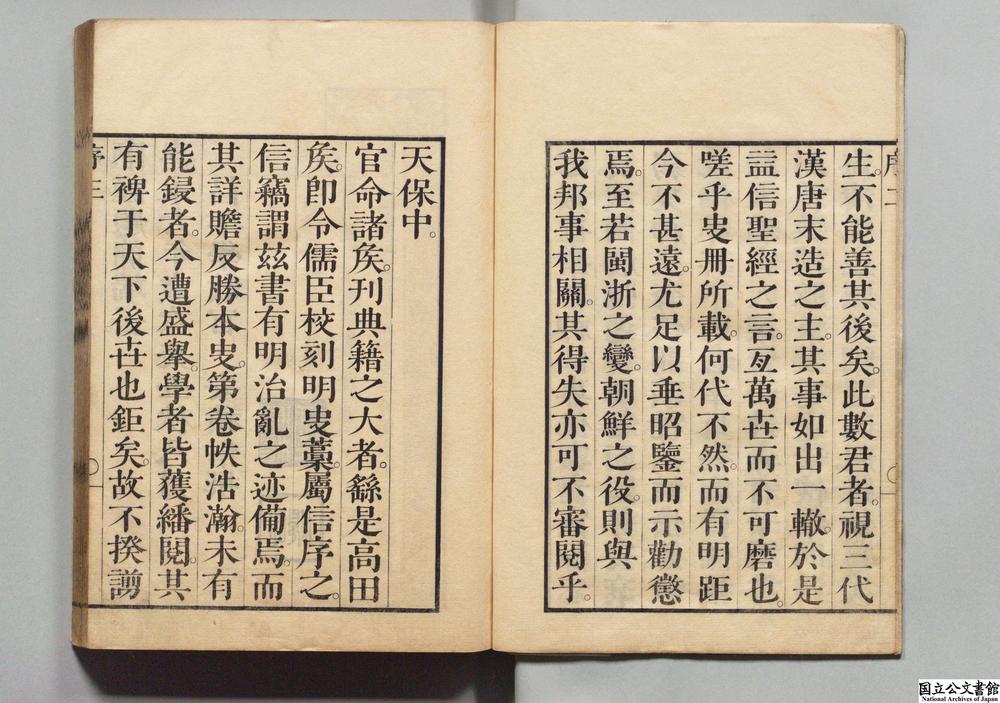 序二
生。不能善其後矣。此數君者。視三代
漢唐末造之主。其事如出一轍。於是
益信聖經之言。亙萬世而不可磨也。
嗟乎史冊所載。何代不然。而有明距
今不甚遠。尤足以垂昭鑒而示勸懲
焉。至若閩浙之變。朝鮮之役。則與
我邦事相關。其得失亦可不審閱乎。
天保中。
官命諸矦。刊典籍之大者。繇是高田
矦。卽令儒臣校刻明史藁。屬信序之。
信竊謂玆書有明治亂之迹備焉。而
其詳贍反勝本史。第卷帙浩瀚。未有
能鋟者。今遭盛舉。學者皆獲繙閱。其
有裨于天下後世也鉅矣。故不揆謭
序三
国立公文書館
National Archives of Japan